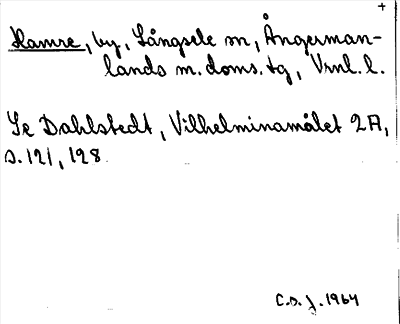 +
Hamre, by, Långsele sn, Ångerman-
lands m. doms. tg, Vrnl. l.
Se Dahlstedt, Vilhelminamålet 2A,
s. 121, 128
C.D. J. 1964